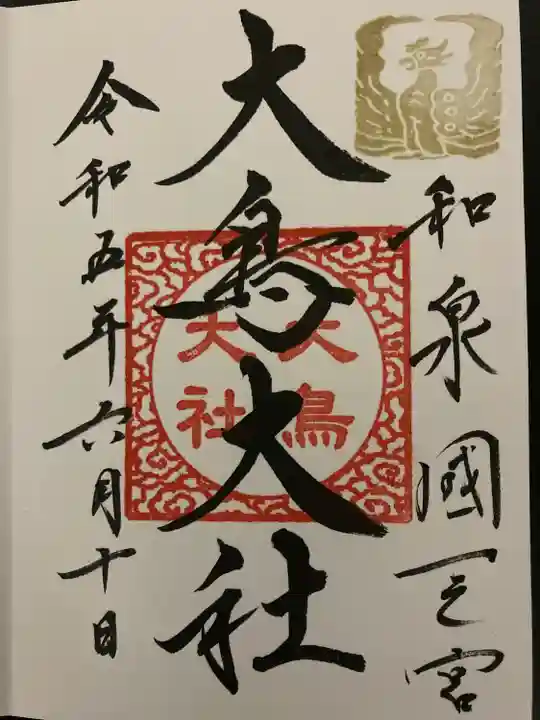 和泉國一之宮
大鳥大社
大鳥
大社
令和五年六月十日